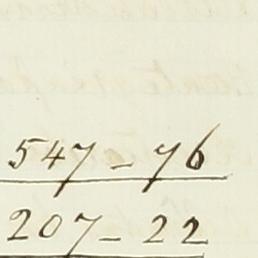 547 - 76
207 - 22